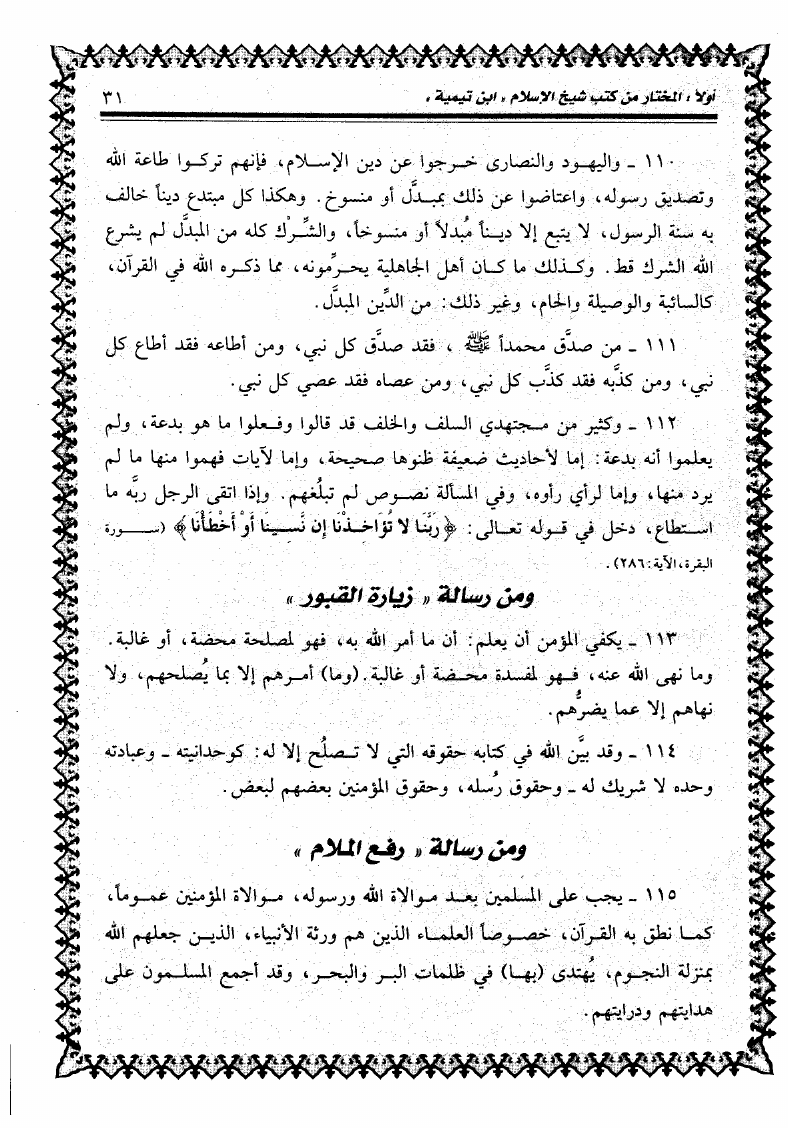 أولاً : المختار من كتب شيخ الإسلام « ابن تيمية » ٣١
١١٠ ـ واليهود والنصارى خرجوا عن دين الإسلام، فإنهم تركوا طاعة الله
وتصديق رسوله، واعتاضوا عن ذلك بمبدَّل أو منسوخ. وهكذا كل مبتدع ديناً خالف
به سنة الرسول، لا يتبع إلا ديناً مُبدلاً أو منسوخاً، والشِّرْك كله من المبدَّل لم يشرع
الله الشرك قط. وكذلك ما كان أهل الجاهلية يحرِّمونه، مما ذكره الله في القرآن،
كالسائبة والوصيلة والحام، وغير ذلك: من الدِّين المبدَّل.
١١١ ـ من صدَّق محمداً ﷺ ، فقد صدَّق كل نبي، ومن أطاعه فقد أطاع كل
نبي، ومن كذَّبه فقد كذَّب كل نبي، ومن عصاه فقد عصي كل نبي.
١١٢ ـ وكثير من مجتهدي السلف والخلف قد قالوا وفعلوا ما هو بدعة، ولم
يعلموا أنه بدعة: إما لأحاديث ضعيفة ظنوها صحيحة، وإما لآيات فهموا منها ما لم
يرد منها، وإما لرأي رأوه، وفي المسألة نصوص لم تبلُغهم. وإذا اتقى الرجل ربَّه ما
استطاع، دخل في قوله تعالى: ﴿رَبَّنَا لا تُؤَاخِذْنَا إِن نَّسِينَا أَوْ أَخْطَأْنَا﴾ (سورة
البقرة، الآية:٢٨٦).
ومن رسالة « زيارة القبور »
١١٣ ـ يكفي المؤمن أن يعلم: أن ما أمر الله به، فهو لمصلحة محضة، أو غالبة.
وما نهى الله عنه، فهو لمفسدة محضة أو غالبة. (وما) أمرهم إلا بما يُصلحهم، ولا
نهاهم إلا عما يضرُّهم.
١١٤ ـ وقد بيَّن الله في كتابه حقوقه التي لا تصلُح إلا له: كوحدانيته ـ وعبادته
وحده لا شريك له ـ وحقوق رُسله، وحقوق المؤمنين بعضهم لبعض.
ومن رسالة « رفع الملام »
١١٥ ـ يجب على المسلمين بعد موالاة الله ورسوله، موالاة المؤمنين عموماً،
كما نطق به القرآن، خصوصاً العلماء الذين هم ورثة الأنبياء، الذين جعلهم الله
بمنزلة النجوم، يُهتدى (بها) في ظلمات البر والبحر، وقد أجمع المسلمون على
هدايتهم ودرايتهم.